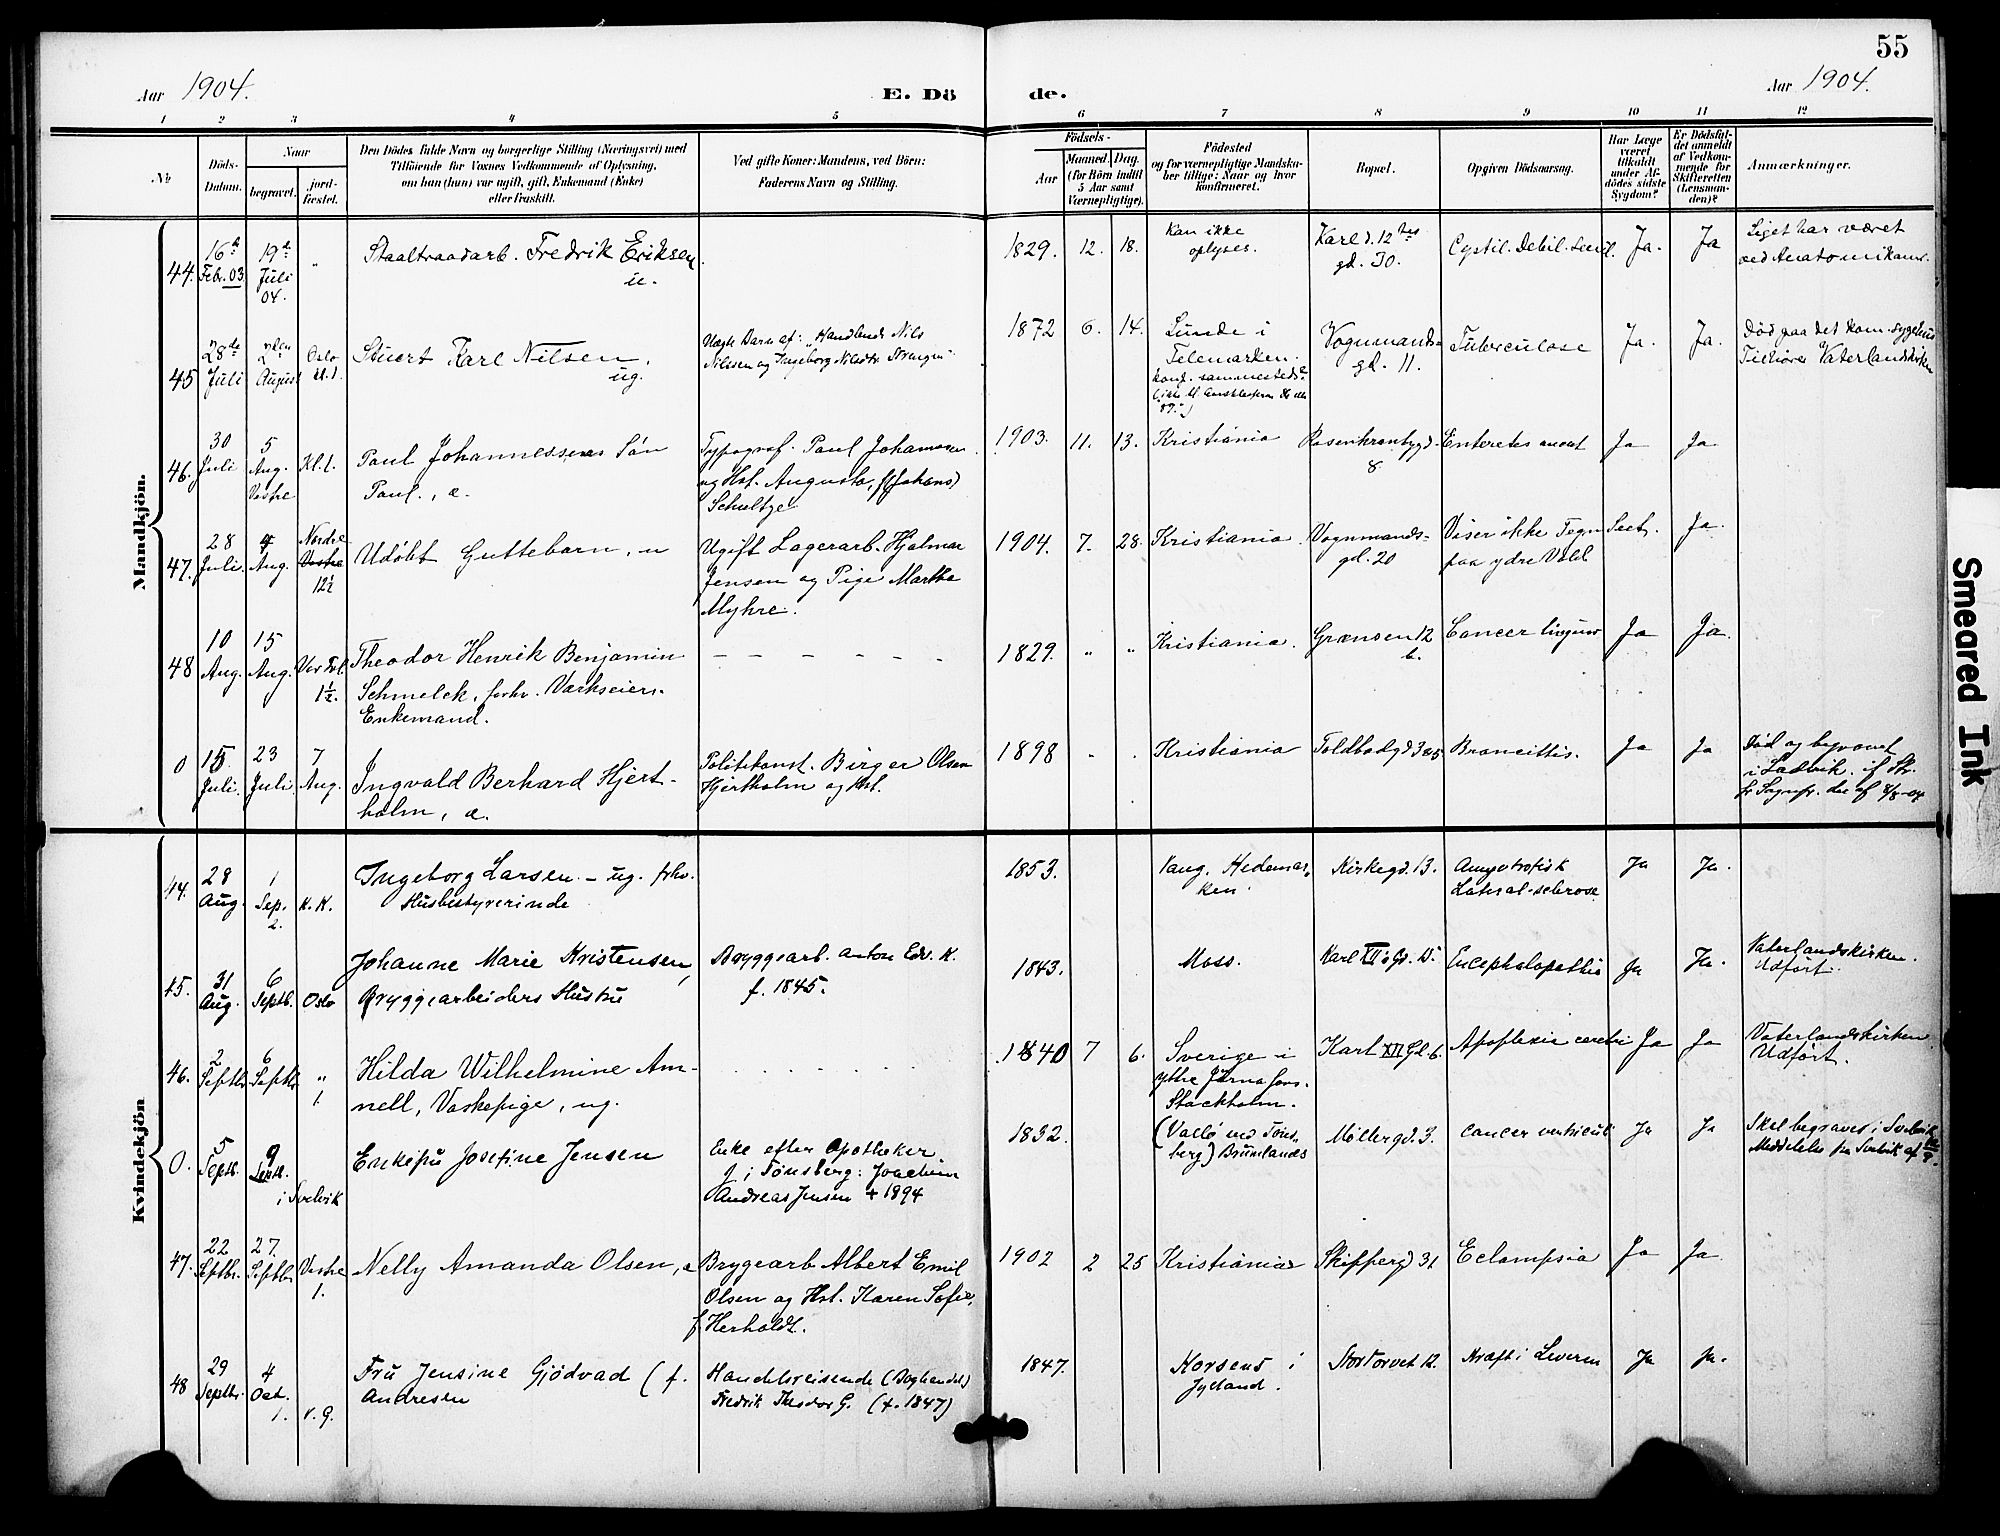 55
Aar 1904.
E. Dö
de.
Aar 1904.
1 2 3 4 5 6 7 8 9 10 11 12
№
Döds-Datum.
Naar
begravet.
jord-fæstet.
Den Dödes fulde Navn og borgerlige Stilling (Næringsvei) med
Tilföiende for Voxnes Vedkommende af Oplysning,
om han (hun) var ugift, gift, Enkemand (Enke)
eller fraskilt.
Ved gifte Koner: Mandens, ved Börn:
Faderens Navn og Stilling.
Födsels-
Aar
Maaned. Dag.
(for Börn indtil
5 Aar samt
Værnepligtige).
Födested
og for værnepligtige Mandska-
ber tillige: Naar og hvor
konfirmeret.
Bopæl.
Opgiven Dödsaarsag.
Har Læge
været
tilkaldt
under Af-
dödes sidste
Sygdom?
Er Dödsfal-
det anmeldt
af Vedkom-
mende for
Skifteretten
(Lensman-
den)?
Anmærkninger.
Mandkjön.
44. 16de Febr. 03 19de Juli 04. "
Staaltraadarb. Fredrik Eriksen
u.
1829. 12. 18.
Kan ikke
oplyses.
Karl d. 12tes
gd. 30.
Cystit. Debil. senil.
Ja. Ja
Liget har været
ved Anatomikam.
45 28de Juli 2den August Oslo Kl. 1.
Stuert Karl Nilsen,
ug.
Uægte Barn af: "Handlende Nils
Nilsen og Ingeborg Nilsdtr
1872 6. 14.
Lunde i
Telemarken.
konf. sammesteds
Vognmands-
gd. 11.
Tuberculose
Ja. Ja.
Död paa det kom. sygehus
Tilhører Vaterlandskirken
46. 30 Juli 5 Aug. Vestre Kl. 1.
Paul Johannessens Sön
Paul., æ.
Typograf. Paul Johannesen
og Hst. Augusta, f. (Johans)
Schultze
1903. 11. 13.
Kristiania
Rosenkrantzgd.
8.
Ja Ja
47. 28 Juli. 4 Aug. Nordre Vestre 12½
Udöbt Guttebarn, u
Ugift Lagerarb. Hjalmar
Jensen og Pige Marthe
Myhre.
1904. 7. 28.
Kristiania.
Vognmands-
gd. 20
Viser ikke Tegn
paa ydre Vold
Sect. Ja.
48 10 Aug. 15 Aug. 1½.
Theodor Henrik Benjamin
Schmelck, forhv. Værkseier.
Enkemand.
– – – – – –
1829. " "
Kristiania.
Grænsen 12
b.
Cancer linguæ
Ja Ja.
0 15. Juli. 23 Juli 7 Aug.
Ingvald Berhard Hjert-
holm, æ.
Politikonst. Birger Olsen
Hjertholm og Hst.
1898 " .
Kristiania
Toldbodgd 3
Broncittis.
Ja Ja
Död og begravet
i Ladvik. if.
8/8-04
Kvindekjön
44. 28 Aug. 1 Sep. 2. K. K.
Ingeborg Larsen – ug. fvhv.
Husbestyrerinde
1853.
Vang. Hedemar-
ken.
Kirkegd. 13.
Amyotrofisk
Lateral-sclerose
Ja Ja.
45. 31 Aug. 6 Septb. Oslo
Johanne Marie Kristensen,
Bryggearbeiders Hustru
Bryggearb. Anton Edv. K.
f. 1845.
1843.
Moss.
Karl XII s Gd. 15.
Encephalopathia
Ja Ja.
Vaterlandskirken.
Udfört.
46. 2 Septbr 6 Septbr " 1.
Hilda Wilhelmine Am-
nell, Vaskepige, ug.
. . . . . . .
1840 7 6.
Sverige – i
ytre Järna
Stockholm.
Karl XII Gd. 6.
Apoplexia cerebri
Ja Ja
Vaterlandskirken
Udfört.
0. 5 Septb. 9 Septb. i Svelvik
Enkefru Josefine Jensen
Enke efter Apotheker
J. i Tönsberg: Joachim
Andreas Jensen † 1894
1832.
(Vallö ved Töns-
berg) Brunlanes
Møllergd. 3.
Cancer ventriculi
Ja Ja
Skal begraves i Svelvik
Meddelelse fra Svelvik af
47. 22 Septbr. 27. Septbr Vestre 1.
Nelly Amanda Olsen, æ
Brygearb. Albert Emil
Olsen og Hst. Karen Sofie,
f. Herholdt.
1902 2 25
Kristiania
Skipperg 31
Eclampsia
Ja Ja
48 29 Septbr. 4 Oct. 1. V. G.
Fru Jensine Gjödvad (f.
Andresen
Handelsreisende (Boghandel)
Fredrik Theodor G. (f. 1847)
1847.
Horsens i
Jylland.
Stortorvet 12.
Kræft i Leveren
Ja Ja.
Smeared Ink